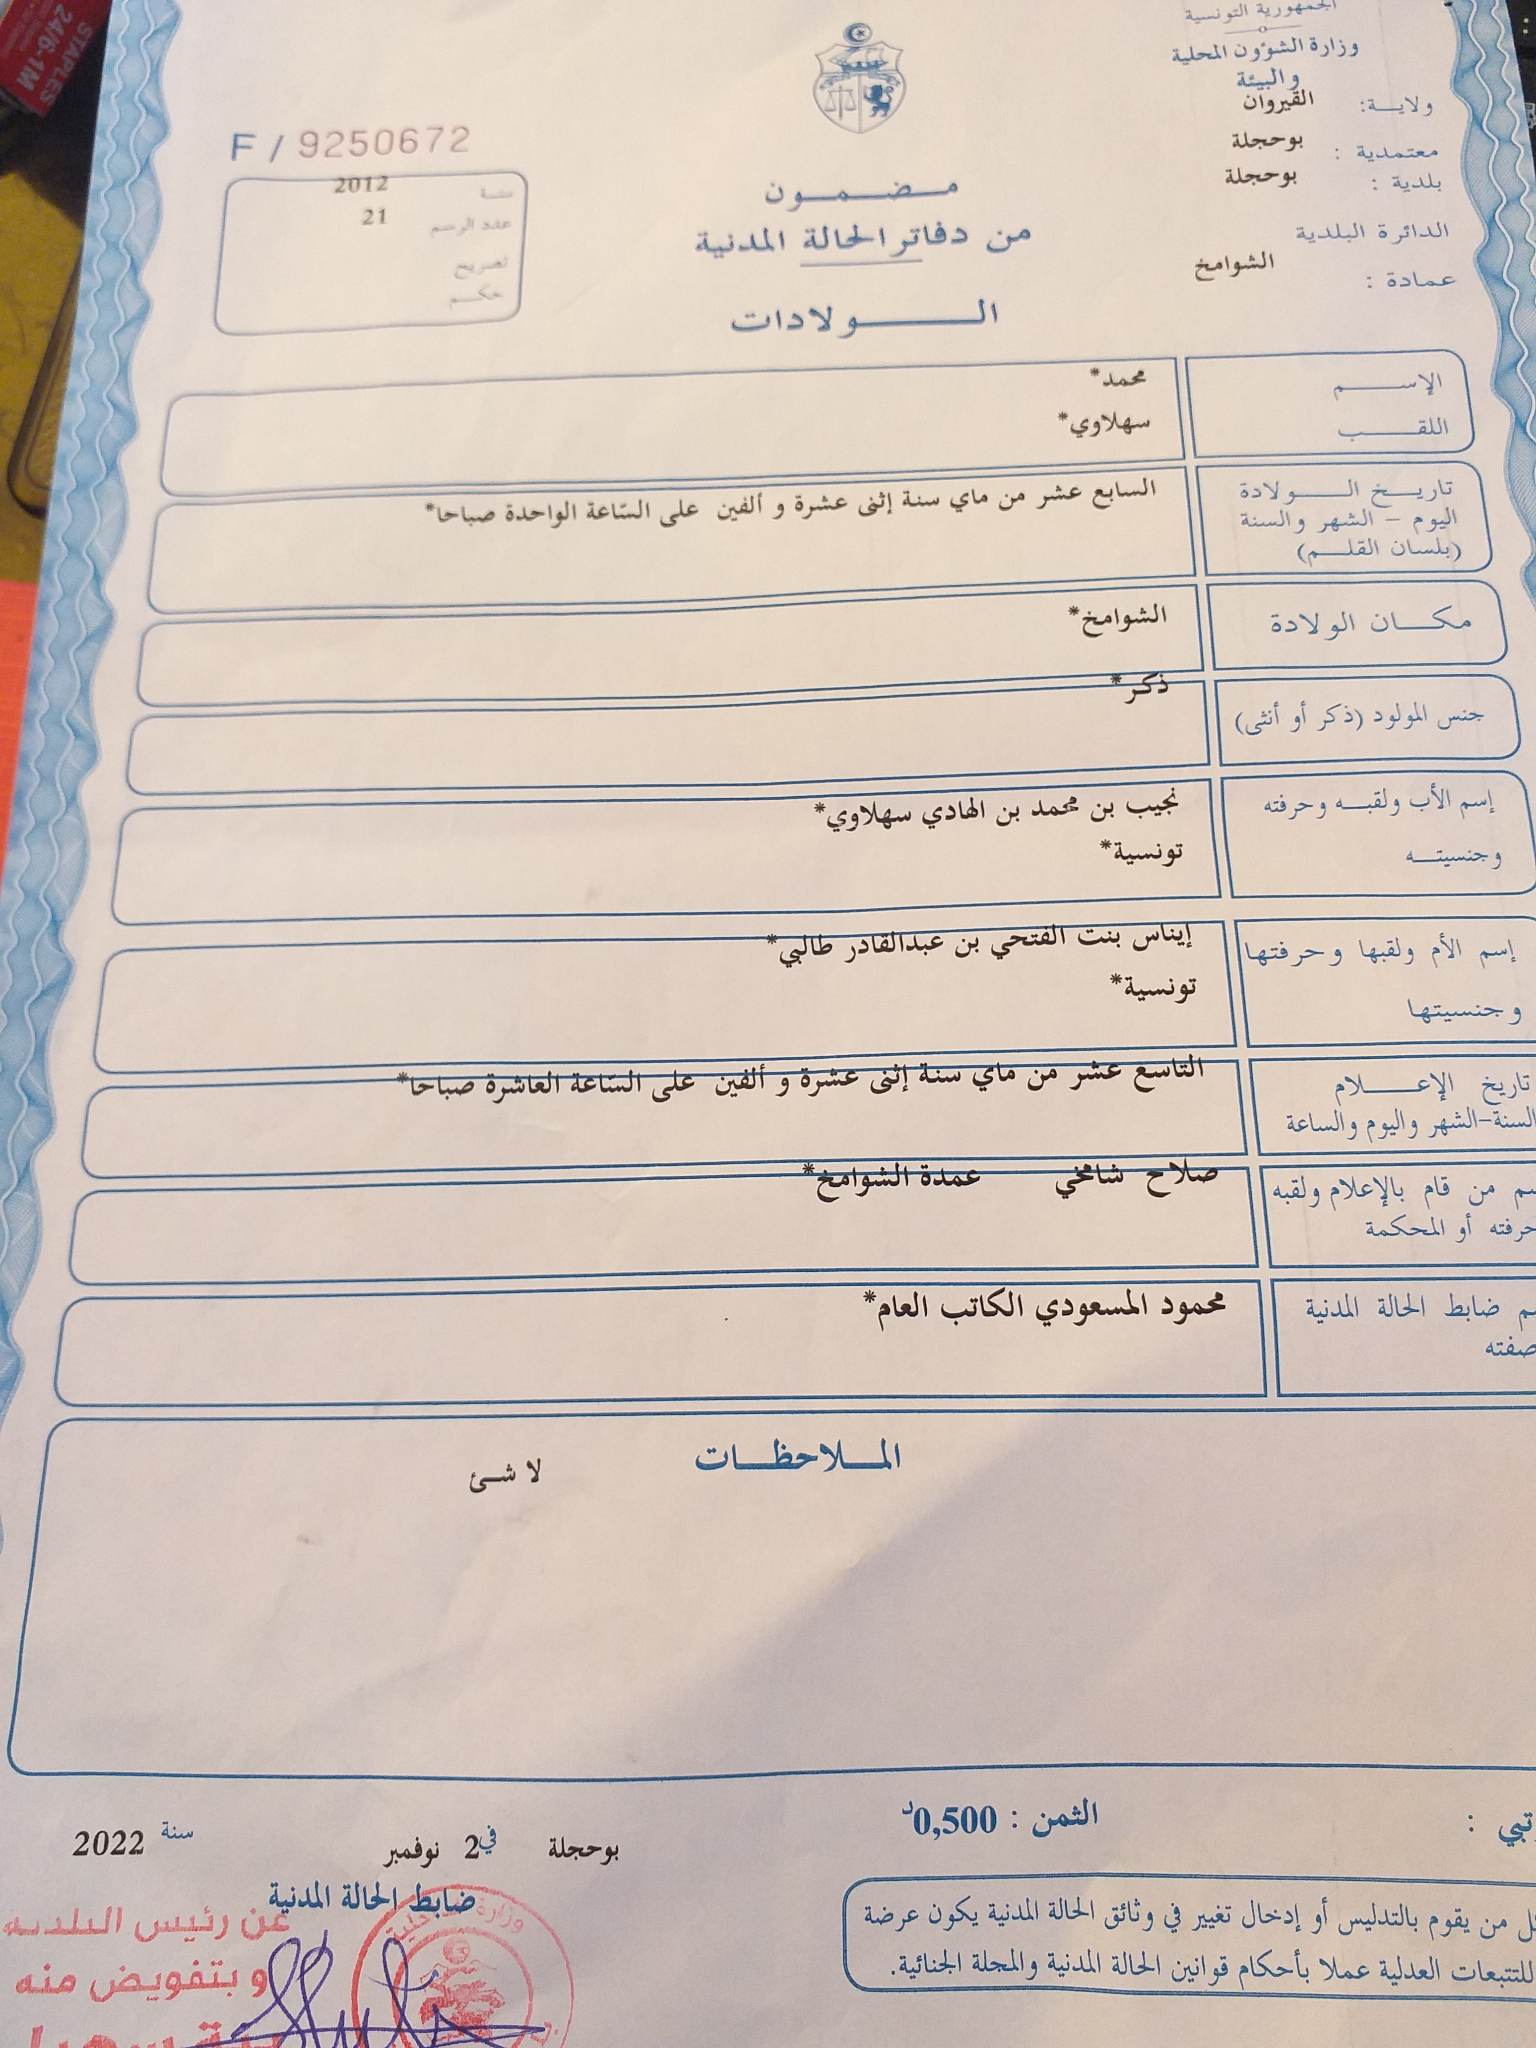 الجمهورية التونسية
وزارة الشؤون المحلية
والبيئة
ولاية: القيروان
معتمدية : بوحجلة
بلدية : بوحجلة
الدائرة البلدية
عمادة : الشوامخ
F / 9250672
سنة 2012
عدد الرسم 21
تصريح
حكم
مضمون
من دفاتر الحالة المدنية
الولادات
الإسم محمد*
اللقب سهلاوي*
تاريخ الولادة السابع عشر من ماي سنة إثنى عشرة و ألفين على السّاعة الواحدة صباحا*
اليوم - الشهر والسنة
(بلسان القلم)
مكان الولادة الشوامخ*
جنس المولود (ذكر أو أنثى) ذكر*
إسم الأب ولقبه وحرفته نجيب بن محمد بن الهادي سهلاوي*
وجنسيته تونسية*
إسم الأم ولقبها وحرفتها إيناس بنت الفتحي بن عبدالقادر طالبي*
وجنسيتها تونسية*
تاريخ الإعلام التاسع عشر من ماي سنة إثنى عشرة و ألفين على السّاعة العاشرة صباحا*
السنة-الشهر واليوم والساعة
من قام بالإعلام ولقبه صلاح شامخي عمدة الشوامخ*
حرفته أو المحكمة
ضابط الحالة المدنية محمود المسعودي الكاتب العام*
صفته
الملاحظات
لا شئ
الثمن : 0,500د
بوحجلة في 2 نوفمبر سنة 2022
ضابط الحالة المدنية
من يقوم بالتدليس أو إدخال تغيير في وثائق الحالة المدنية يكون عرضة
للتتبعات العدلية عملا بأحكام قوانين الحالة المدنية والمجلة الجنائية.
عن رئيس البلدية
وبتفويض منه
وزارة